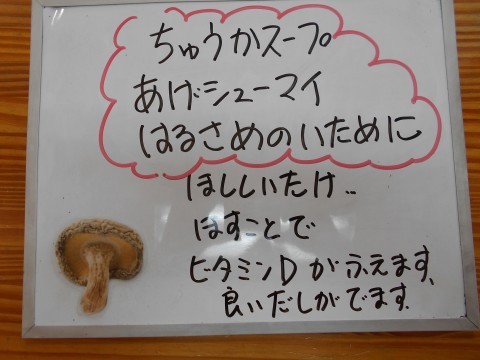 ちゅうかスープ
あげシューマイ
はるさめのいために
ほししいたけ..
ほすことで
ビタミンDがふえます。
良いだしがでます.